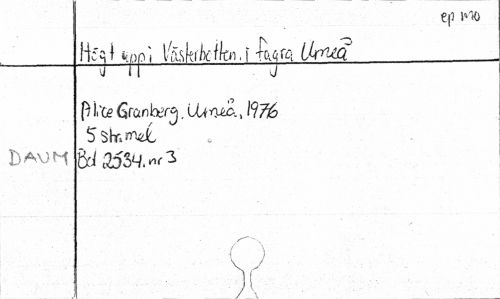 ep 1170
Högt uppi Västerbotten, i fagra Umeå
Alice Granberg, Umeå, 1976
5 str. mel
DAUM Bd 2534. nr 3